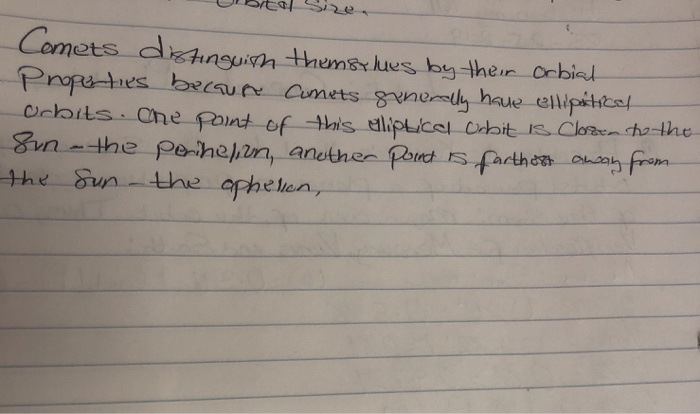 Orbital Size.
Comets distinguish themselves by their orbial
Properties because Comets generally have ellipitical
orbits. One point of this elliptical orbit is Closer to the
Sun - the perihelion, another Point is farthest away from
the Sun - the aphelion,